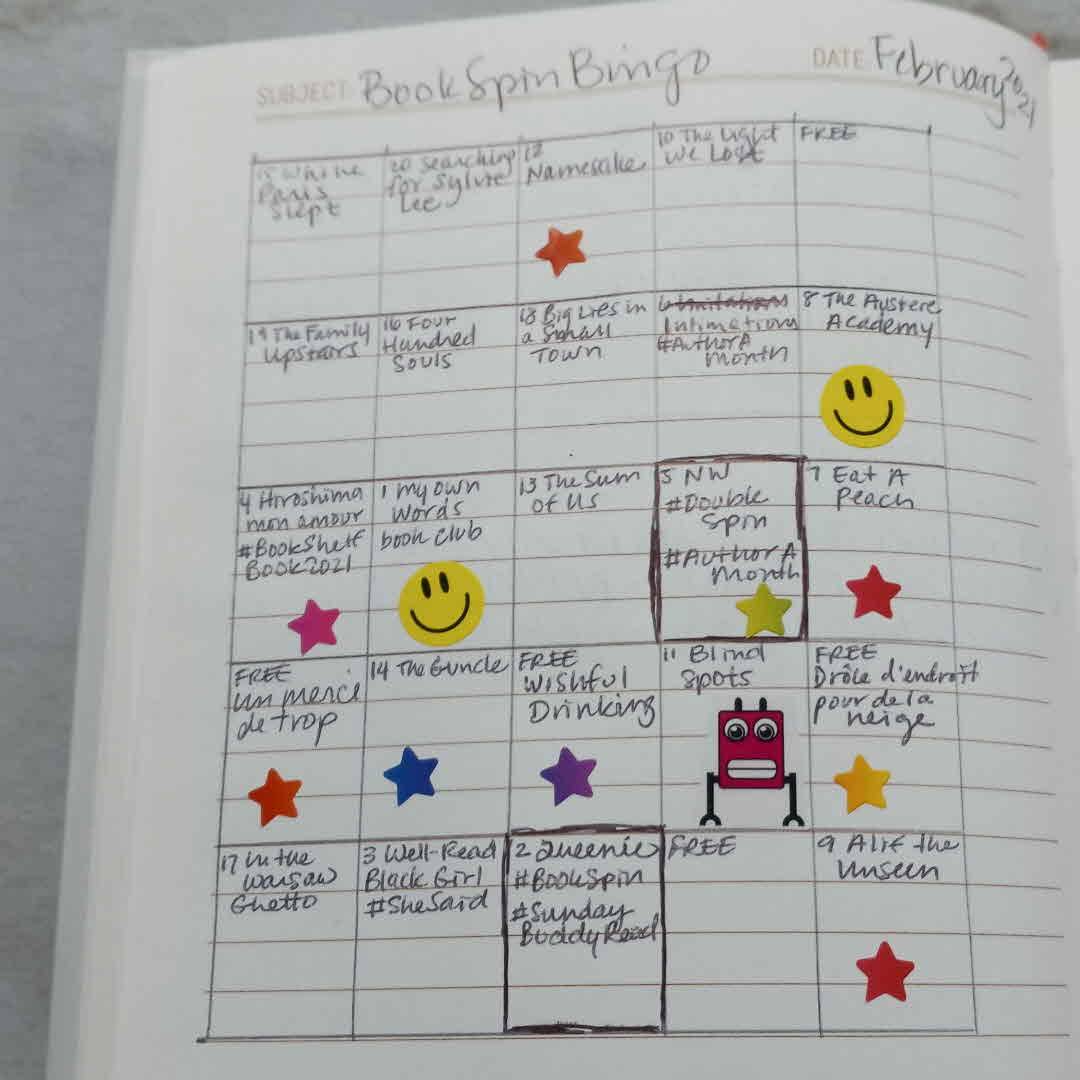 SUBJECT: Book Spin Bingo
DATE February 2021
15 While
Paris
Slept
20 Searching
for Sylvie
Lee
12
Namesake
10 The Light
We Lost
FREE
19 The Family
Upstairs
16 Four
Hundred
Souls
18 Big Lies in
a Small
Town
6
Intimations
#AuthorA
Month
8 The Austere
Academy
4 Hiroshima
mon amour
#BookShelf
Book2021
1 My Own
Words
book club
13 The Sum
of Us
5 NW
#Double
Spin
#AuthorA
Month
7 Eat A
Peach
FREE
un merci
de trop
14 The Guncle
FREE
Wishful
Drinking
11 Blind
Spots
FREE
Drôle d'endroit
pour de la
neige
17 In the
Warsaw
Ghetto
3 Well-Read
Black Girl
#SheSaid
2 Queenie
#BookSpin
#Sunday
BuddyRead
FREE
9 Alif the
Unseen